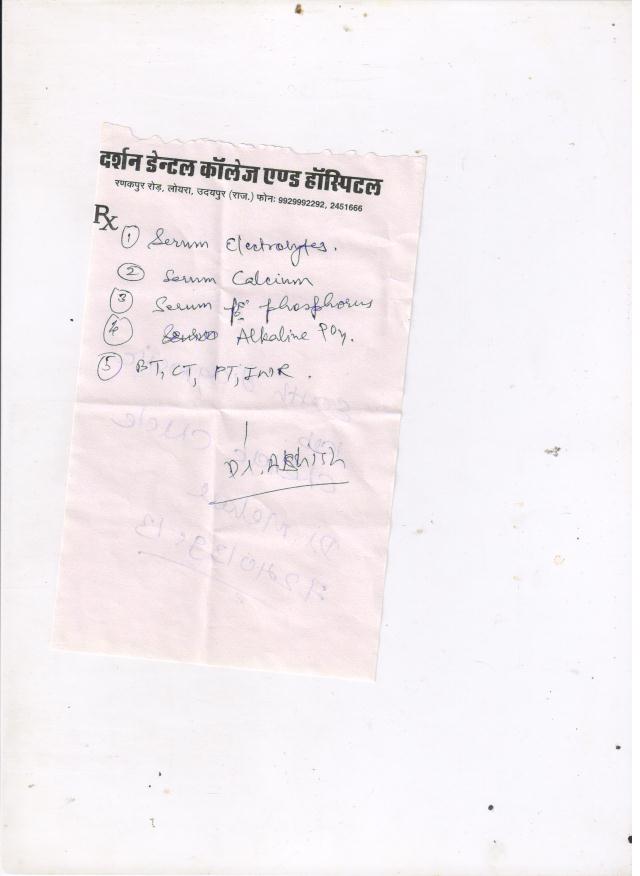 दर्शन डेन्टल कॉलेज एण्ड हॉस्पिटल
रणकपुर रोड, लोयरा, उदयपुर (राज.) फोन: 9929992292, 2451666
Rx
① Serum Electrolytes.
② Serum Calcium
③ Serum phosphorus
④ Alkaline POy.
⑤ BT, CT, PT, INR.
Dr. ABHITH